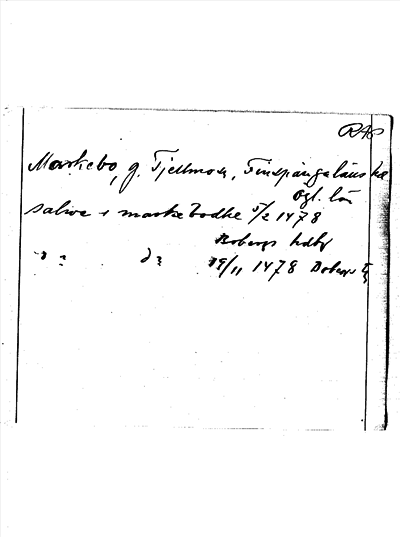 RAP
Markebo, g. Tjellmo s, Finspångaläns hd
Ögl. län
salwe i markebodhe 5/2 1478
Bobergs hdbr
D:o D:o 19/11 1478 Bobergs